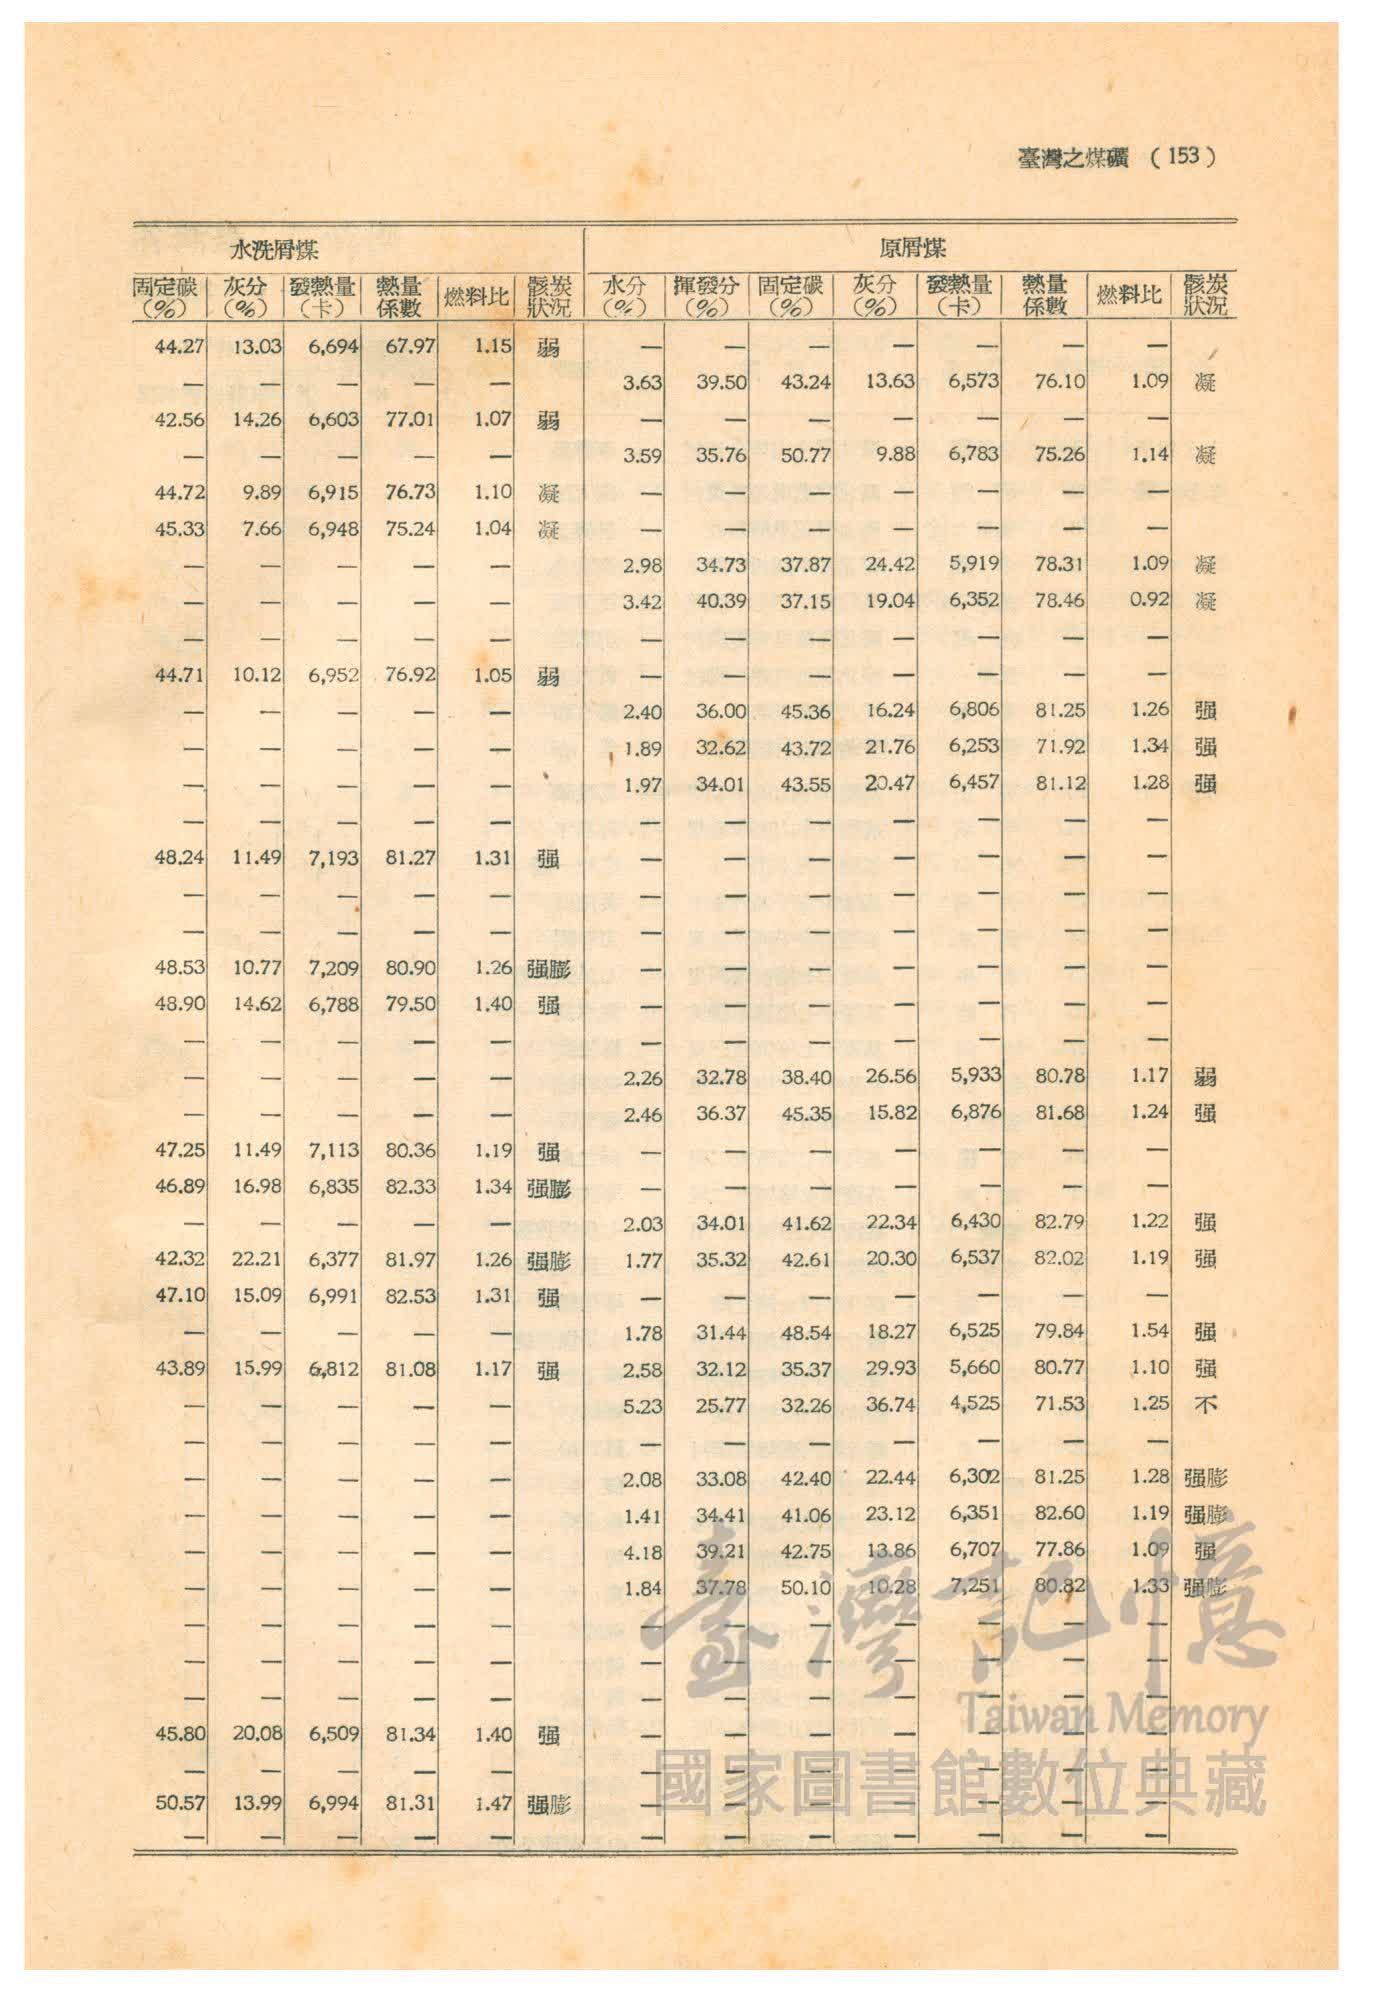 臺灣之煤礦 （153）
水洗屑煤 原屑煤
固定碳(%) 灰分(%) 發熱量(卡) 熱量係數 燃料比 骸炭狀況 水分(%) 揮發分(%) 固定碳(%) 灰分(%) 發熱量(卡) 熱量係數 燃料比 骸炭狀況
44.27 13.03 6,694 67.97 1.15 弱 — — — — — — —
— — — — — 3.63 39.50 43.24 13.63 6,573 76.10 1.09 凝
42.56 14.26 6,603 77.01 1.07 弱 — — — — — — —
— — — — — 3.59 35.76 50.77 9.88 6,783 75.26 1.14 凝
44.72 9.89 6,915 76.73 1.10 凝 — — — — — — —
45.33 7.66 6,948 75.24 1.04 凝 — — — — — — —
— — — — — 2.98 34.73 37.87 24.42 5,919 78.31 1.09 凝
— — — — — 3.42 40.39 37.15 19.04 6,352 78.46 0.92 凝
— — — — — — — — — — — —
44.71 10.12 6,952 76.92 1.05 弱 — — — — — — —
— — — — — 2.40 36.00 45.36 16.24 6,806 81.25 1.26 强
— — — — — 1.89 32.62 43.72 21.76 6,253 71.92 1.34 强
— — — — — 1.97 34.01 43.55 20.47 6,457 81.12 1.28 强
— — — — — — — — — — — —
48.24 11.49 7,193 81.27 1.31 强 — — — — — — —
— — — — — — — — — — — —
— — — — — — — — — — — —
48.53 10.77 7,209 80.90 1.26 强膨 — — — — — — —
48.90 14.62 6,788 79.50 1.40 强 — — — — — — —
— — — — — — — — — — — —
— — — — — 2.26 32.78 38.40 26.56 5,933 80.78 1.17 弱
— — — — — 2.46 36.37 45.35 15.82 6,876 81.68 1.24 强
47.25 11.49 7,113 80.36 1.19 强 — — — — — — —
46.89 16.98 6,835 82.33 1.34 强膨 — — — — — — —
— — — — — 2.03 34.01 41.62 22.34 6,430 82.79 1.22 强
42.32 22.21 6,377 81.97 1.26 强膨 1.77 35.32 42.61 20.30 6,537 82.02 1.19 强
47.10 15.09 6,991 82.53 1.31 强 — — — — — — —
— — — — — 1.78 31.44 48.54 18.27 6,525 79.84 1.54 强
43.89 15.99 6,812 81.08 1.17 强 2.58 32.12 35.37 29.93 5,660 80.77 1.10 强
— — — — — 5.23 25.77 32.26 36.74 4,525 71.53 1.25 不
— — — — — — — — — — — —
— — — — — 2.08 33.08 42.40 22.44 6,302 81.25 1.28 强膨
— — — — — 1.41 34.41 41.06 23.12 6,351 82.60 1.19 强膨
— — — — — 4.18 39.21 42.75 13.86 6,707 77.86 1.09 强
— — — — — 1.84 37.78 50.10 10.28 7,251 80.82 1.33 强膨
— — — — — — — — — — — —
— — — — — — — — — — — —
— — — — — — — — — — — —
45.80 20.08 6,509 81.34 1.40 强 — — — — — — —
— — — — — — — — — — — —
50.57 13.99 6,994 81.31 1.47 强膨 — — — — — — —
— — — — — — — — — — — —
臺灣記憶
Taiwan Memory
國家圖書館數位典藏